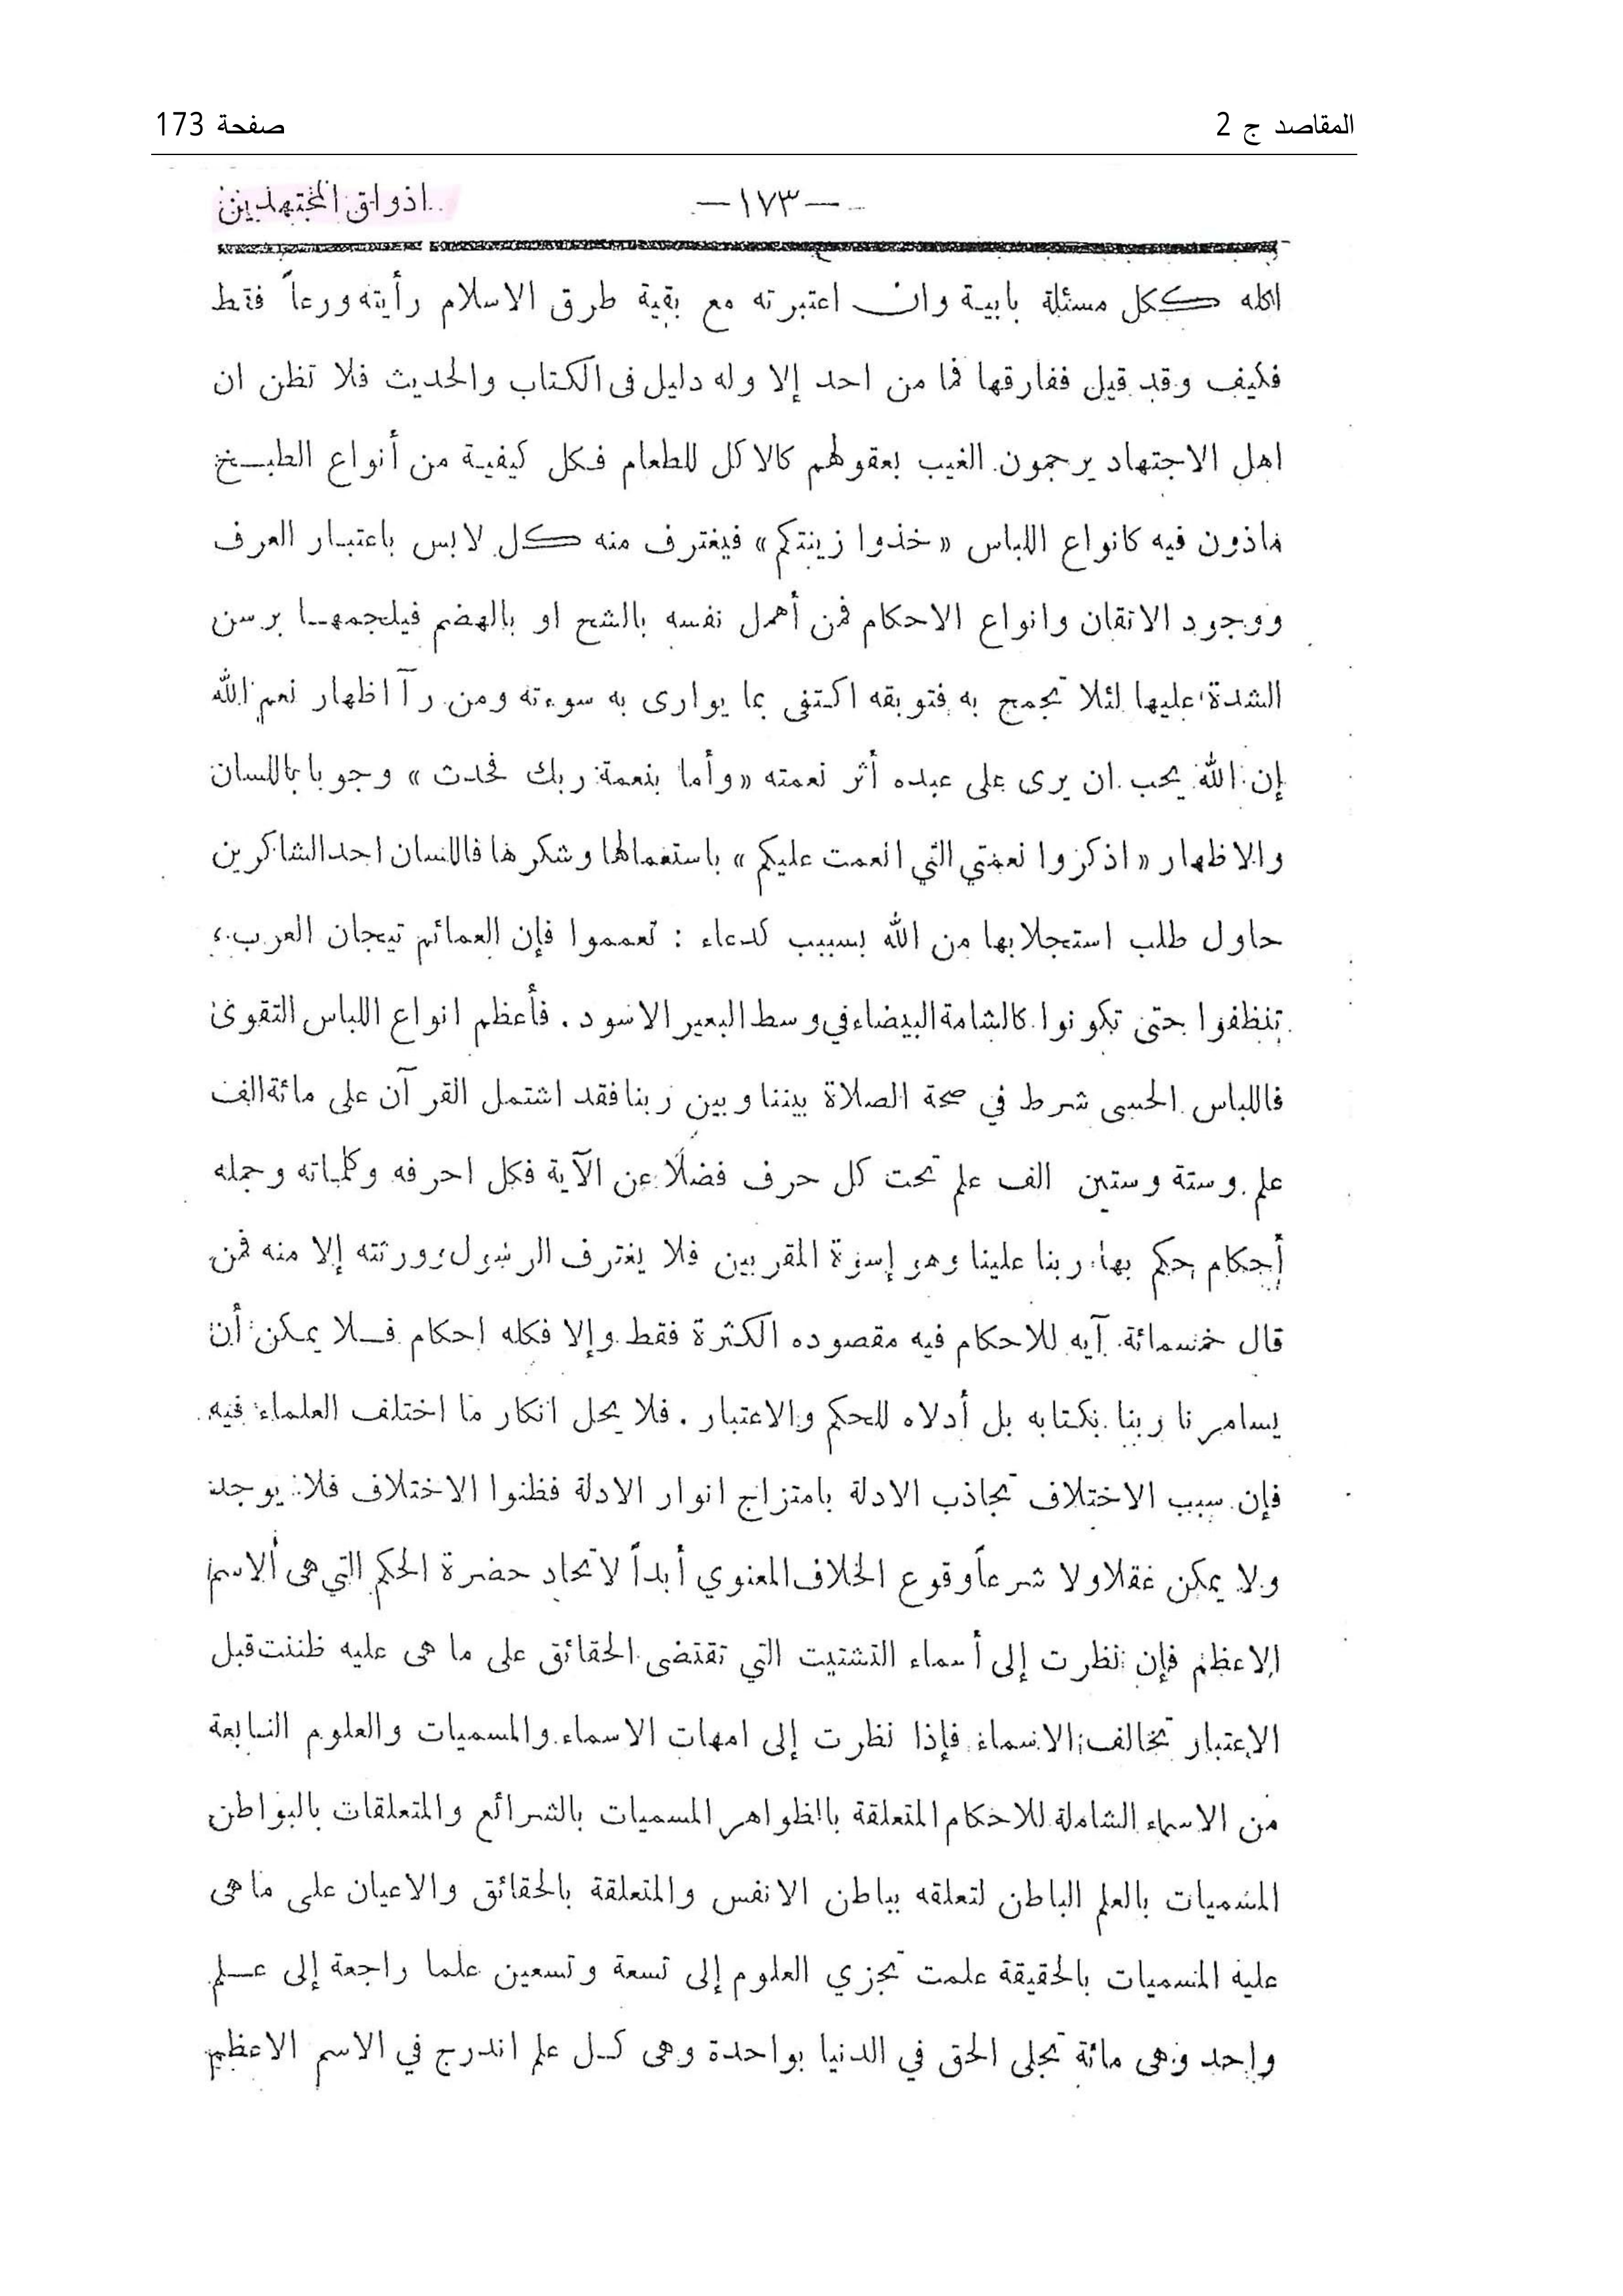 المقاصد ج 2
صفحة 173
اذواق المجتهدين
—١٧٣—
اكله ككل مسئلة بابية وان اعتبرته مع بقية طرق الاسلام رأيته ورعاً فقط
فكيف وقد قيل ففارقها فما من احد إلا وله دليل فى الكتاب والحديث فلا تظن ان
اهل الاجتهاد يرجمون الغيب بعقولهم كالاكل للطعام فكل كيفية من أنواع الطبخ
ماذون فيه كانواع اللباس «خذوا زينتكم» فيغترف منه كل لابس باعتبار العرف
ووجود الاتقان وانواع الاحكام فمن أهمل نفسه بالشح او بالهضم فيلجمها برسن
الشدة عليها لئلا تجمح به فتوبقه اكتفى بما يوارى به سوءته ومن رآ اظهار نعم الله
إن الله يحب ان يرى على عبده أثر نعمته «وأما بنعمة ربك فحدث» وجوبا باللسان
والاظهار «اذكروا نعمتي التي انعمت عليكم» باستعمالها وشكرها فاللسان احد الشاكرين
حاول طلب استجلابها من الله بسبب كدعاء : تعمموا فإن العمائم تيجان العرب ،
تنظفوا حتى تكونوا كالشامة البيضاء في وسط البعير الاسود . فأعظم انواع اللباس التقوى
فاللباس الحسى شرط في صحة الصلاة بيننا وبين ربنا فقد اشتمل القرآن على مائة الف
علم وستة وستين الف علم تحت كل حرف فضلًا عن الآية فكل احرفه وكلماته وجمله
أحكام حكم بها ربنا علينا وهو إسوة المقربين فلا يغترف الرسول وورثته إلا منه فمن
قال خمسمائة آيه للاحكام فيه مقصوده الكثرة فقط وإلا فكله احكام فلا يمكن أن
يسامرنا ربنا بكتابه بل أدلاه للحكم والاعتبار . فلا يحل انكار ما اختلف العلماء فيه
فإن سبب الاختلاف تجاذب الادلة بامتزاج انوار الادلة فظنوا الاختلاف فلا يوجد
ولا يمكن عقلا ولا شرعاً وقوع الخلاف المعنوي أبداً لاتحاد حضرة الحكم التي هى ألاسم
الاعظم فإن نظرت إلى أسماء التشتيت التي تقتضى الحقائق على ما هى عليه ظننت قبل
الاعتبار تخالف الاسماء فإذا نظرت إلى امهات الاسماء والمسميات والعلوم النابعة
من الاسماء الشاملة للاحكام المتعلقة بالظواهر المسميات بالشرائع والمتعلقات بالبواطن
المسميات بالعلم الباطن لتعلقه بباطن الانفس والمتعلقة بالحقائق والاعيان على ما هى
عليه المسميات بالحقيقة علمت تجزي العلوم إلى تسعة وتسعين علما راجعة إلى علم
واحد وهى مائة تجلى الحق في الدنيا بواحدة وهى كل علم اندرج في الاسم الاعظم